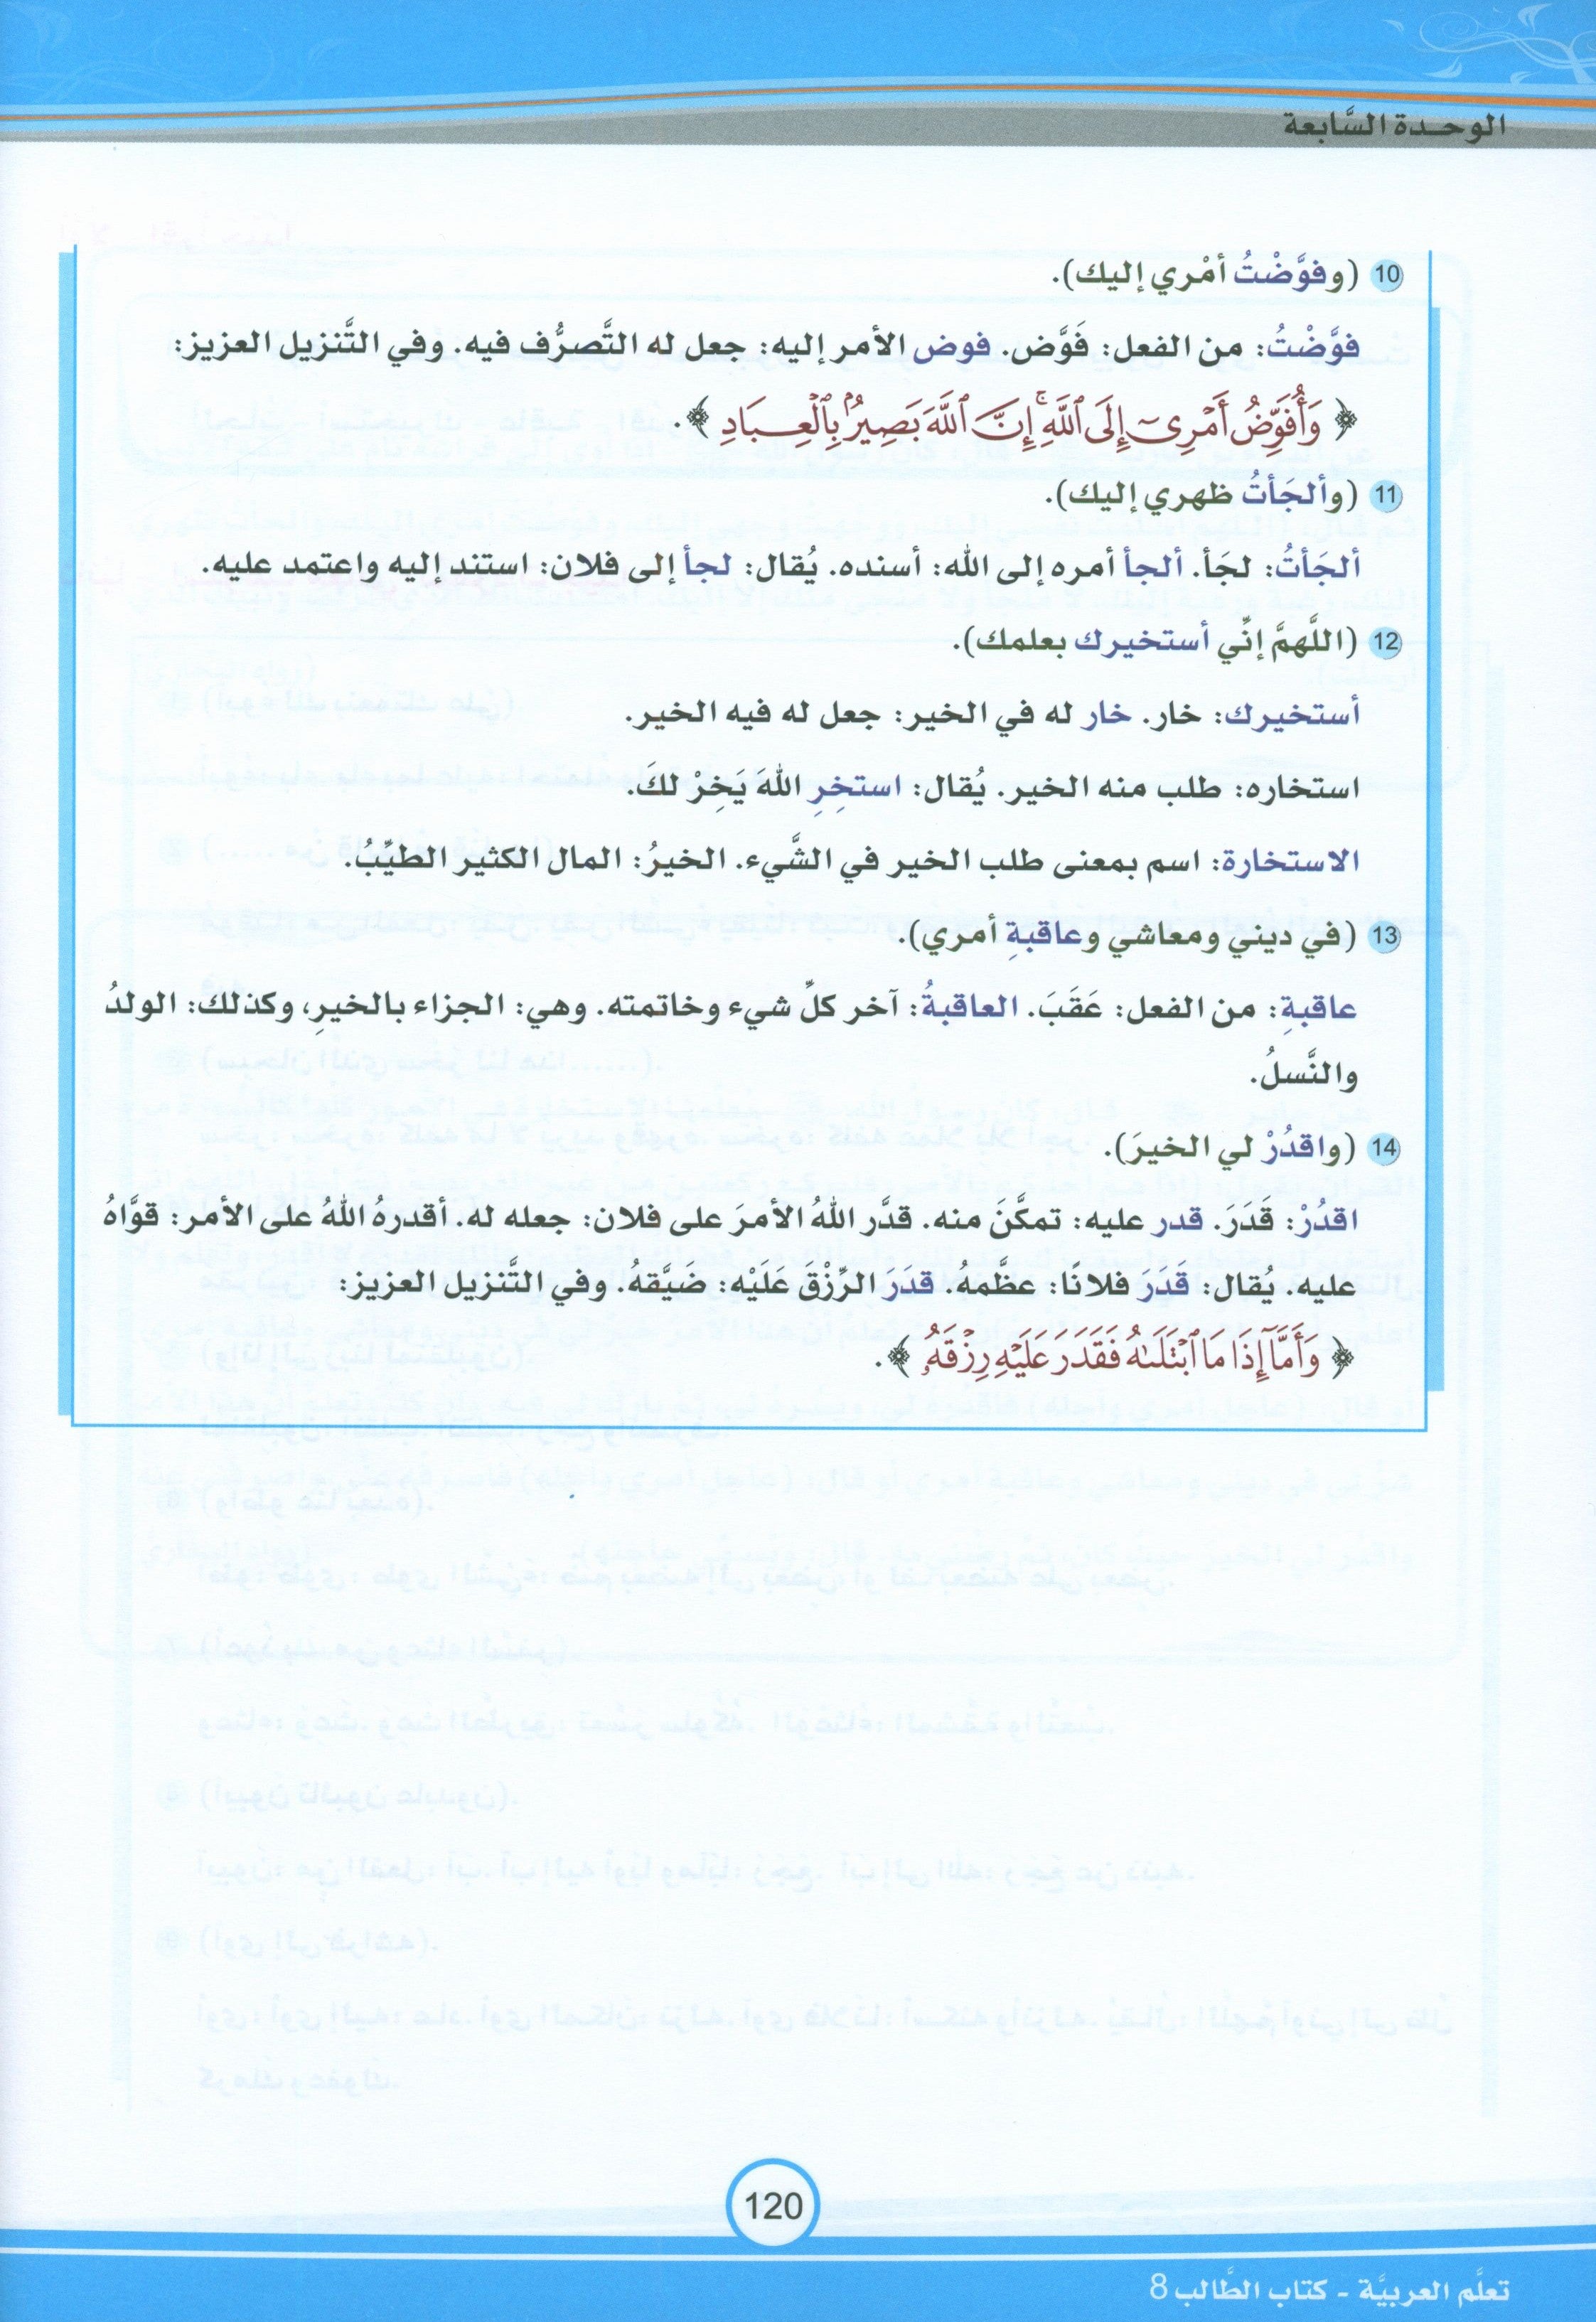 الوحدة السَّابعة
10 (وفوَّضْتُ أمْري إليك).
فوَّضْتُ: من الفعل: فَوَّض. فوض الأمر إليه: جعل له التَّصرُّف فيه. وفي التَّنزيل العزيز:
﴿ وَأُفَوِّضُ أَمْرِىٓ إِلَى ٱللَّهِ ۚ إِنَّ ٱللَّهَ بَصِيرٌۢ بِٱلْعِبَادِ ﴾.
11 (وألجَأتُ ظهري إليك).
ألجَأتُ: لجَأ. ألجأ أمره إلى الله: أسنده. يُقال: لجأ إلى فلان: استند إليه واعتمد عليه.
12 (اللَّهمَّ إنِّي أستخيرك بعلمك).
أستخيرك: خار. خار له في الخير: جعل له فيه الخير.
استخاره: طلب منه الخير. يُقال: استخِرِ اللهَ يَخِرْ لكَ.
الاستخارة: اسم بمعنى طلب الخير في الشَّيء. الخيرُ: المال الكثير الطيِّبُ.
13 (في ديني ومعاشي وعاقبةِ أمري).
عاقبةِ: من الفعل: عَقَبَ. العاقبةُ: آخر كلِّ شيء وخاتمته. وهي: الجزاء بالخيرِ، وكذلك: الولدُ
والنَّسلُ.
14 (واقدُرْ لي الخيرَ).
اقدُرْ: قَدَرَ. قدر عليه: تمكَّنَ منه. قدَّر اللهُ الأمرَ على فلان: جعله له. أقدرهُ اللهُ على الأمر: قوَّاهُ
عليه. يُقال: قَدَرَ فلانًا: عظَّمهُ. قدَرَ الرِّزْقَ عَلَيْه: ضَيَّقهُ. وفي التَّنزيل العزيز:
﴿ وَأَمَّآ إِذَا مَا ٱبْتَلَىٰهُ فَقَدَرَ عَلَيْهِ رِزْقَهُۥ ﴾.
120
تعلَّم العربيَّة - كتاب الطَّالب 8